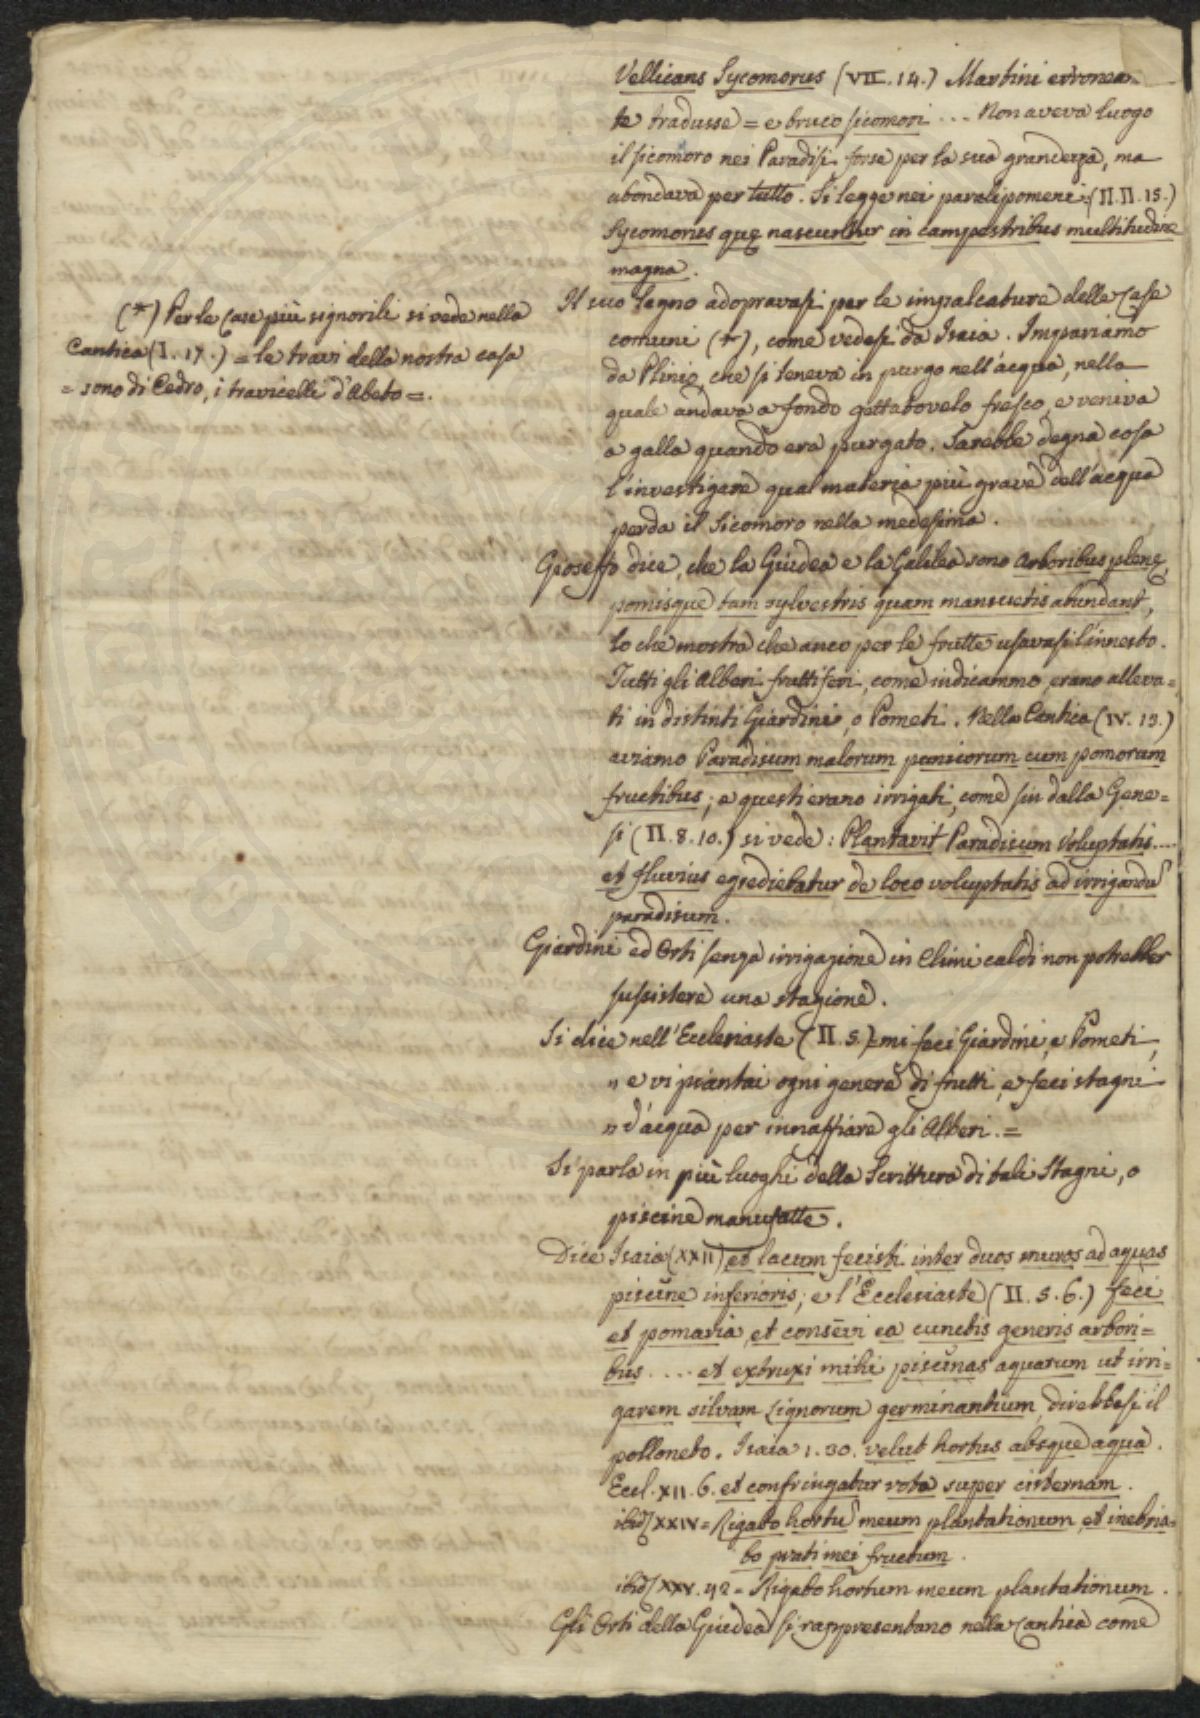 Vellicans Sycomorus (VII. 14.) Martini erronea=
te tradusse = e bruco sicomori ... Non aveva luogo
il sicomoro nei Paradisi forse per la sua grandezza, ma
abondava per tutto. Si legge nei paralipomeni (II. II. 15.)
Sycomorus quę nascuntur in campestribus multitudine
magna.
Il suo legno adopravasi per le impalcature delle Case
comuni (*), come vedesi da Isaia. Impariamo
da Plinio, che si teneva in purgo nell'acqua, nella
quale andava a fondo gettatovelo fresco, e veniva
a galla quando era purgato. Sarebbe degna cosa
l'investigare qual materia più grave dell'acqua
perda il Sicomoro nella medesima.
(*) Per le Case più signorili si vede nella
Cantica (I. 17.) = le travi della nostra casa
= sono di Cedro, i travicelli d'Abeto =.
Gioseffo dice, che la Giudea e la Galilea sono arboribus plenę,
pomisque tam sylvestris quam mansuetis abundant,
lo che mostra che anco per le frutte usavasi l'innesto.
Tutti gli Alberi fruttiferi, come indicammo, erano alleva=
ti in distinti Giardini, o Pometi. Nella Cantica (IV. 13.)
aviamo Paradisum malorum punicorum cum pomorum
fructibus; e questi erano irrigati, come sin dalla Gene=
si (II. 8. 10.) si vede: Plantavit Paradisum Voluptatis....
et fluvius egrediebatur de loco voluptatis ad irrigandũ
paradisum.
Giardini ed Orti senza irrigazione in Climi caldi non potrebber
sussistere una stagione.
Si dice nell'Ecclesiaste (II. 5.) = mi feci Giardini, e Pometi,
" e vi piantai ogni genere di frutti, e feci stagni
" d'acqua per innaffiare gli Alberi. =
Si parla in più luoghi della Scrittura di tali Stagni, o
piscine manufatte.
Dice Isaia (XXII) et lacum fecisti inter duos muros ad aquas
piscinę inferioris; e l'Ecclesiaste (II. 5. 6.) feci
et pomaria, et consevi ea cunctis generis arbori=
bus .... et extruxi mihi piscinas aquarum ut irri=
garem silvam lignorum germinantium, direbbesi il
polloneto. Isaia 1. 30. velut hortus absque aqua.
Eccl. XII. 6. et confringatur rota super cisternam.
ibid. XXIV = Rigabo hortũ meum plantationum, et inebria=
bo prati mei fructum.
ibid. XXV. 42 = Rigabo hortum meum plantationum.
Gli Orti della Giudea si rappresentano nella Cantica come